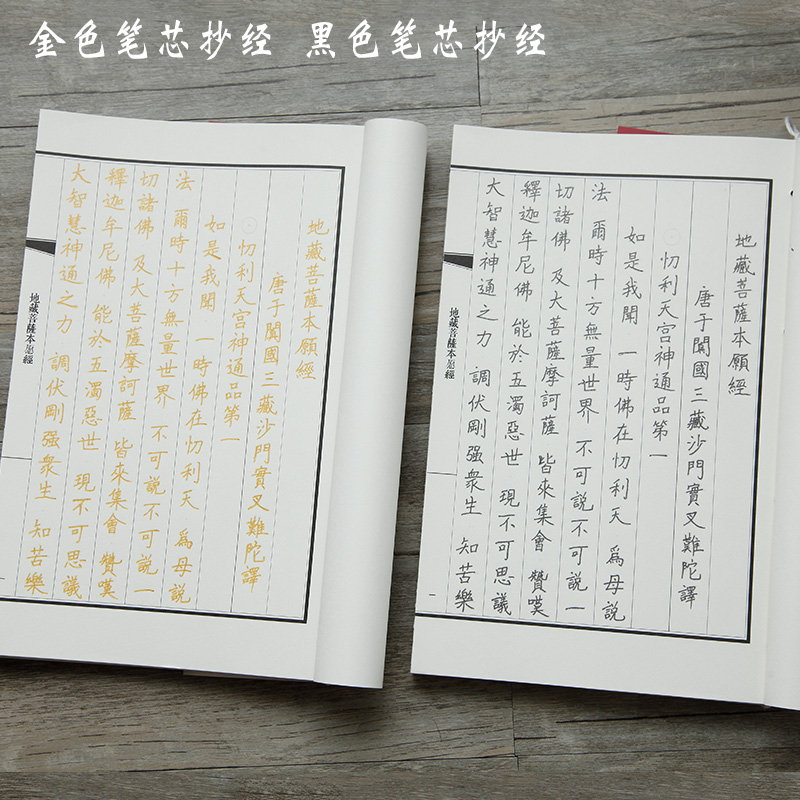 金色笔芯抄经 黑色笔芯抄经
地藏菩薩本願經
唐于闐國三藏沙門實叉難陀譯
忉利天宮神通品第一
如是我聞 一時佛在忉利天 爲母說
法 爾時十方無量世界 不可說不可說一
切諸佛 及大菩薩摩訶薩 皆來集會 贊嘆
釋迦牟尼佛 能於五濁惡世 現不可思議
大智慧神通之力 調伏剛强衆生 知苦樂
地藏菩薩本愿經
一
地藏菩薩本願經
唐于闐國三藏沙門實叉難陀譯
忉利天宮神通品第一
如是我聞 一時佛在忉利天 爲母說
法 爾時十方無量世界 不可說不可說一
切諸佛 及大菩薩摩訶薩 皆來集會 贊嘆
釋迦牟尼佛 能於五濁惡世 現不可思議
大智慧神通之力 調伏剛强衆生 知苦樂
地藏菩薩本愿經
一